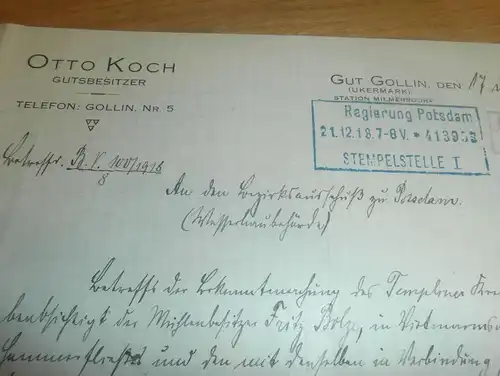 OTTO KOCH
GUTSBESITZER
TELEFON: GOLLIN, NR. 5
GUT GOLLIN, DEN 17
(UKERMARK)
STATION MILMERSDORF
Regierung Potsdam
21.12.18.7-8V. * 413903
STEMPELSTELLE I
Betreffs. B. V. 100/1918
8
An den Bezirksausschuß zu Potsdam.
(Wasserbaubehörde)
Betreffs der Bekanntmachung des Templiner Kre
beabsichtigt der Mühlenbesitzer Fritz Bolze, in
Hammerfließes und den mit denselben in Verbindung